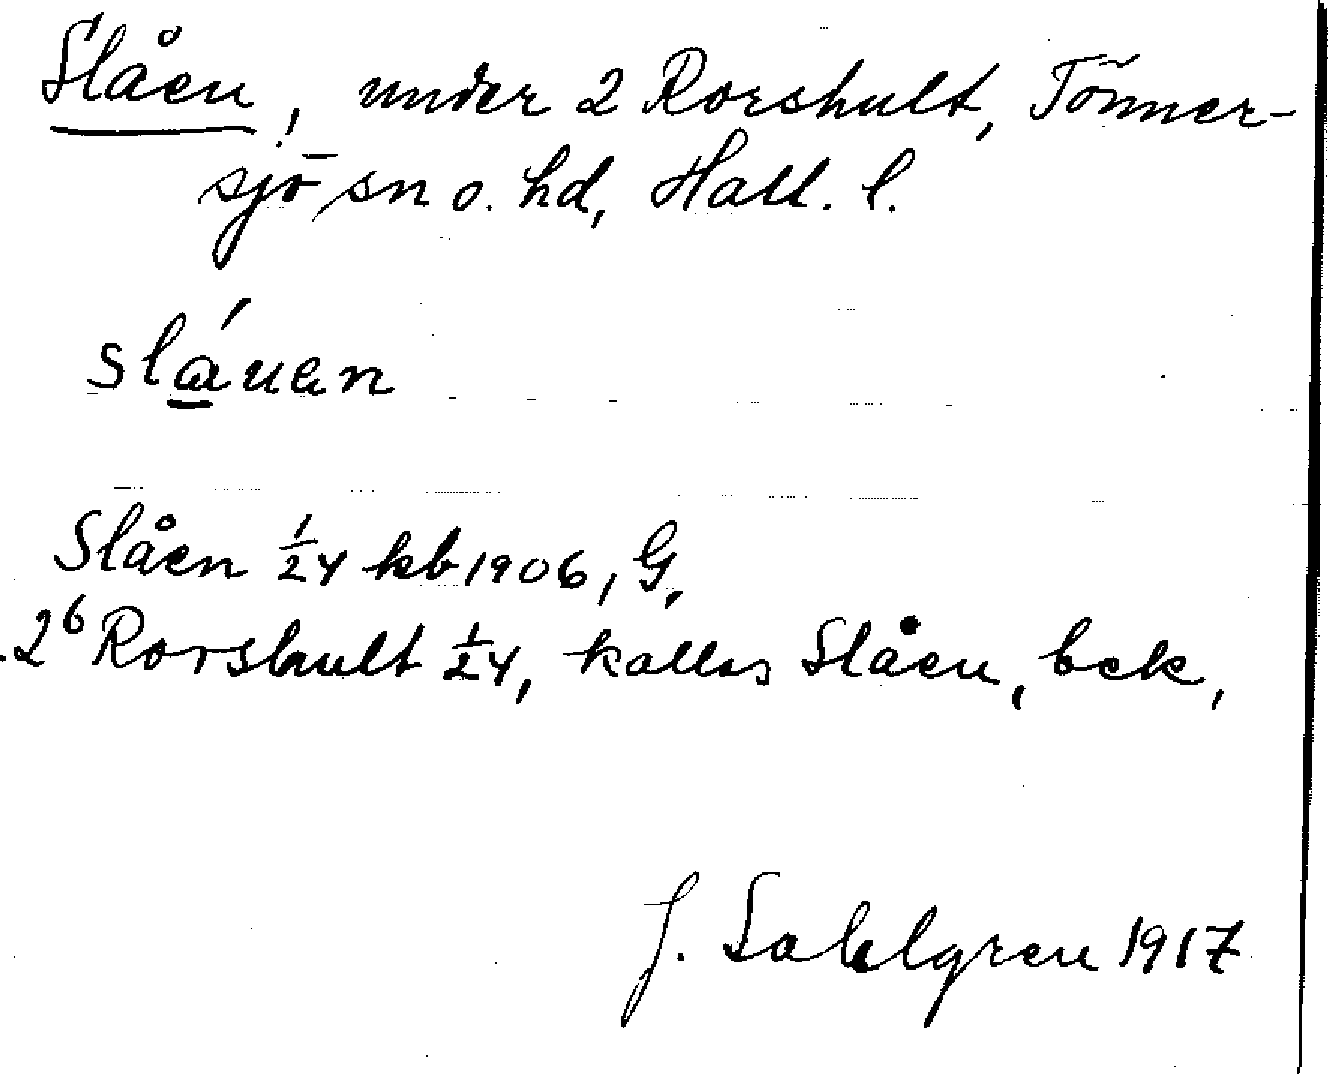 Slåen, under 2 Rorshult, Tönner-
sjö sn o. hd, Hall. l.
slá̱uen
Slåen 1/24 kb 1906, G,
2⁶ Rorshult 1/24, kallas Slåen, bek,
J. Sahlgren 1917